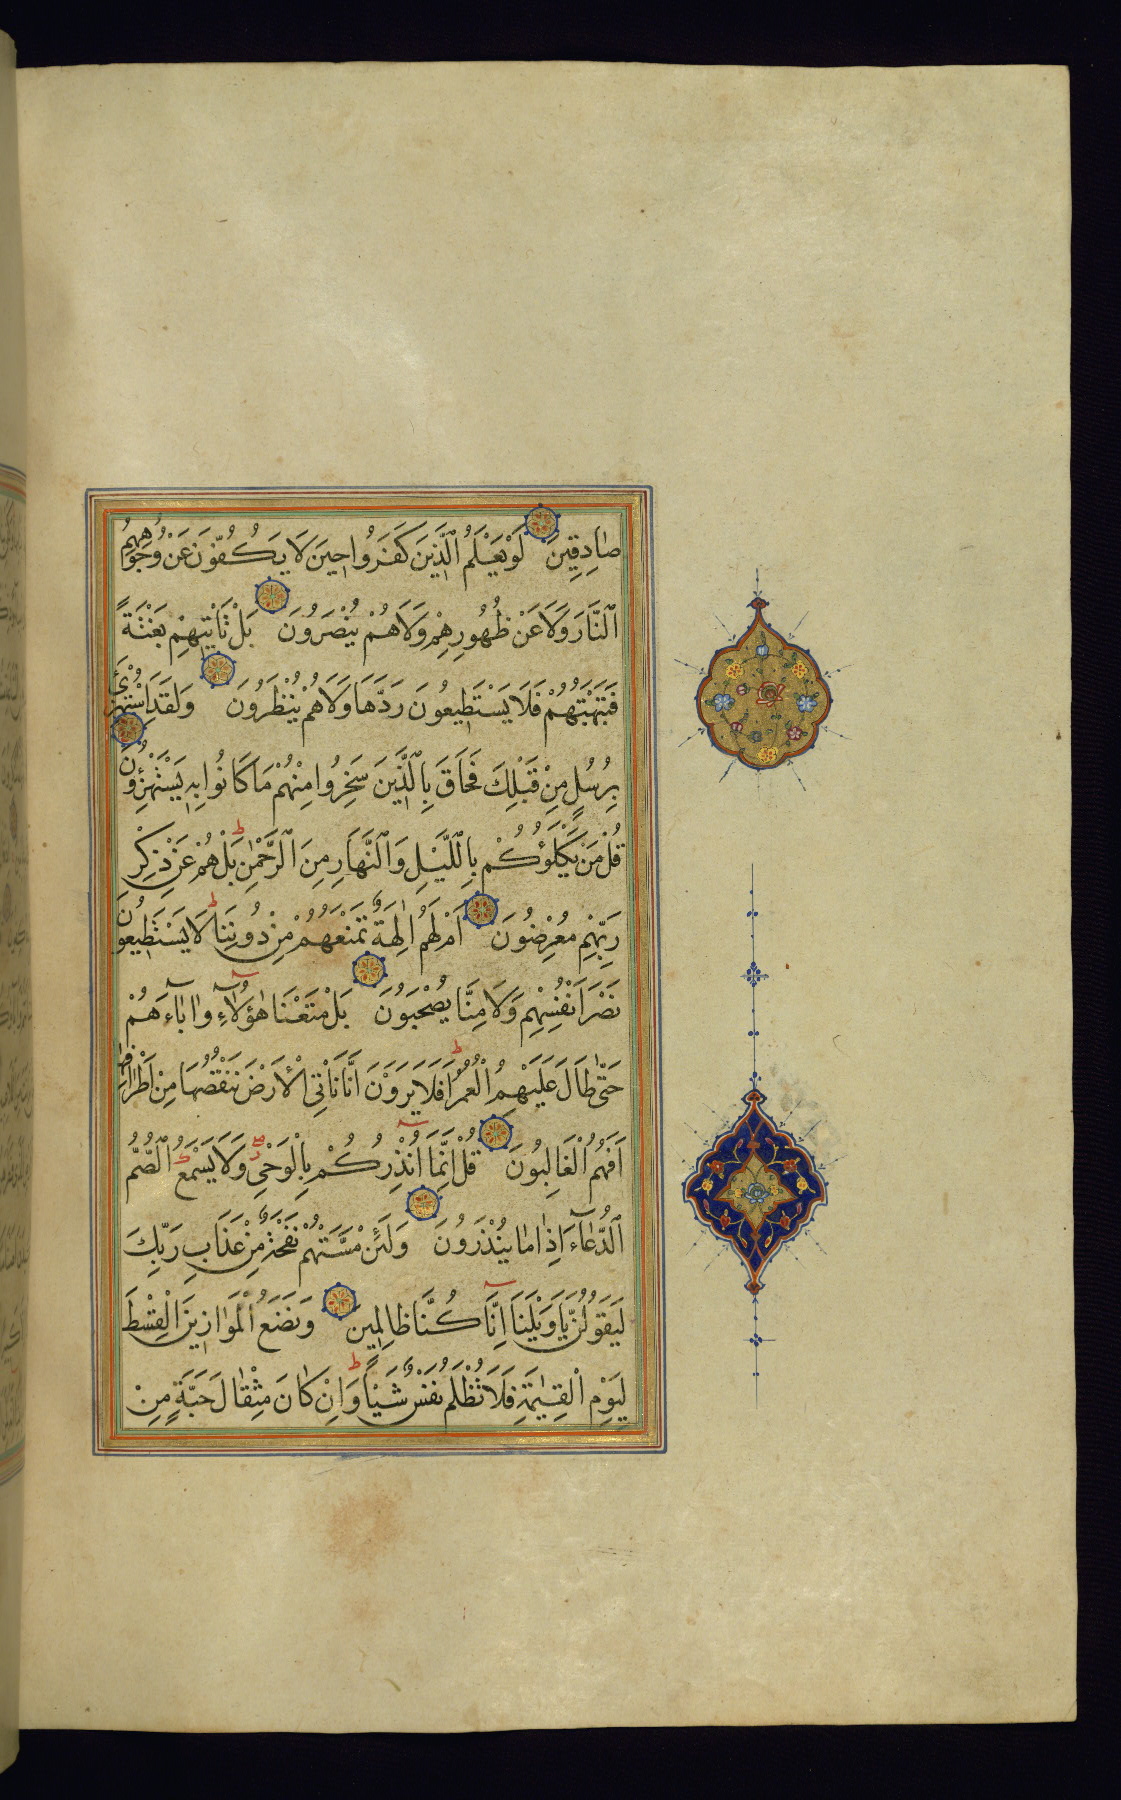 صَادِقِينَ لَوْ يَعْلَمُ الَّذِينَ كَفَرُوا حِينَ لَا يَكُفُّونَ عَنْ وُجُوهِهِمُ
النَّارَ وَلَا عَنْ ظُهُورِهِمْ وَلَا هُمْ يُنْصَرُونَ بَلْ تَأْتِيهِمْ بَغْتَةً
فَتَبْهَتُهُمْ فَلَا يَسْتَطِيعُونَ رَدَّهَا وَلَا هُمْ يُنْظَرُونَ وَلَقَدِ اسْتُهْزِئَ
بِرُسُلٍ مِنْ قَبْلِكَ فَحَاقَ بِالَّذِينَ سَخِرُوا مِنْهُمْ مَا كَانُوا بِهِ يَسْتَهْزِؤُنَ
قُلْ مَنْ يَكْلَؤُكُمْ بِاللَّيْلِ وَالنَّهَارِ مِنَ الرَّحْمٰنِ ط بَلْ هُمْ عَنْ ذِكْرِ
رَبِّهِمْ مُعْرِضُونَ اَمْ لَهُمْ اٰلِهَةٌ تَمْنَعُهُمْ مِنْ دُونِنَا ط لَا يَسْتَطِيعُونَ
نَصْرَ اَنْفُسِهِمْ وَلَا هُمْ مِنَّا يُصْحَبُونَ بَلْ مَتَّعْنَا هٰؤُلَاءِ وَاٰبَاءَهُمْ
حَتّٰى طَالَ عَلَيْهِمُ الْعُمُرُ ط اَفَلَا يَرَوْنَ اَنَّا نَاْتِي الْاَرْضَ نَنْقُصُهَا مِنْ اَطْرَافِهَا ط
اَفَهُمُ الْغَالِبُونَ قُلْ اِنَّمَا اُنْذِرُكُمْ بِالْوَحْيِ وَلَا يَسْمَعُ الصُّمُّ
الدُّعَاءَ اِذَا مَا يُنْذَرُونَ وَلَئِنْ مَسَّتْهُمْ نَفْحَةٌ مِنْ عَذَابِ رَبِّكَ
لَيَقُولُنَّ يَا وَيْلَنَا اِنَّا كُنَّا ظَالِمِينَ وَنَضَعُ الْمَوَازِينَ الْقِسْطَ
لِيَوْمِ الْقِيٰمَةِ فَلَا تُظْلَمُ نَفْسٌ شَيْئًا ط وَاِنْ كَانَ مِثْقَالَ حَبَّةٍ مِنْ